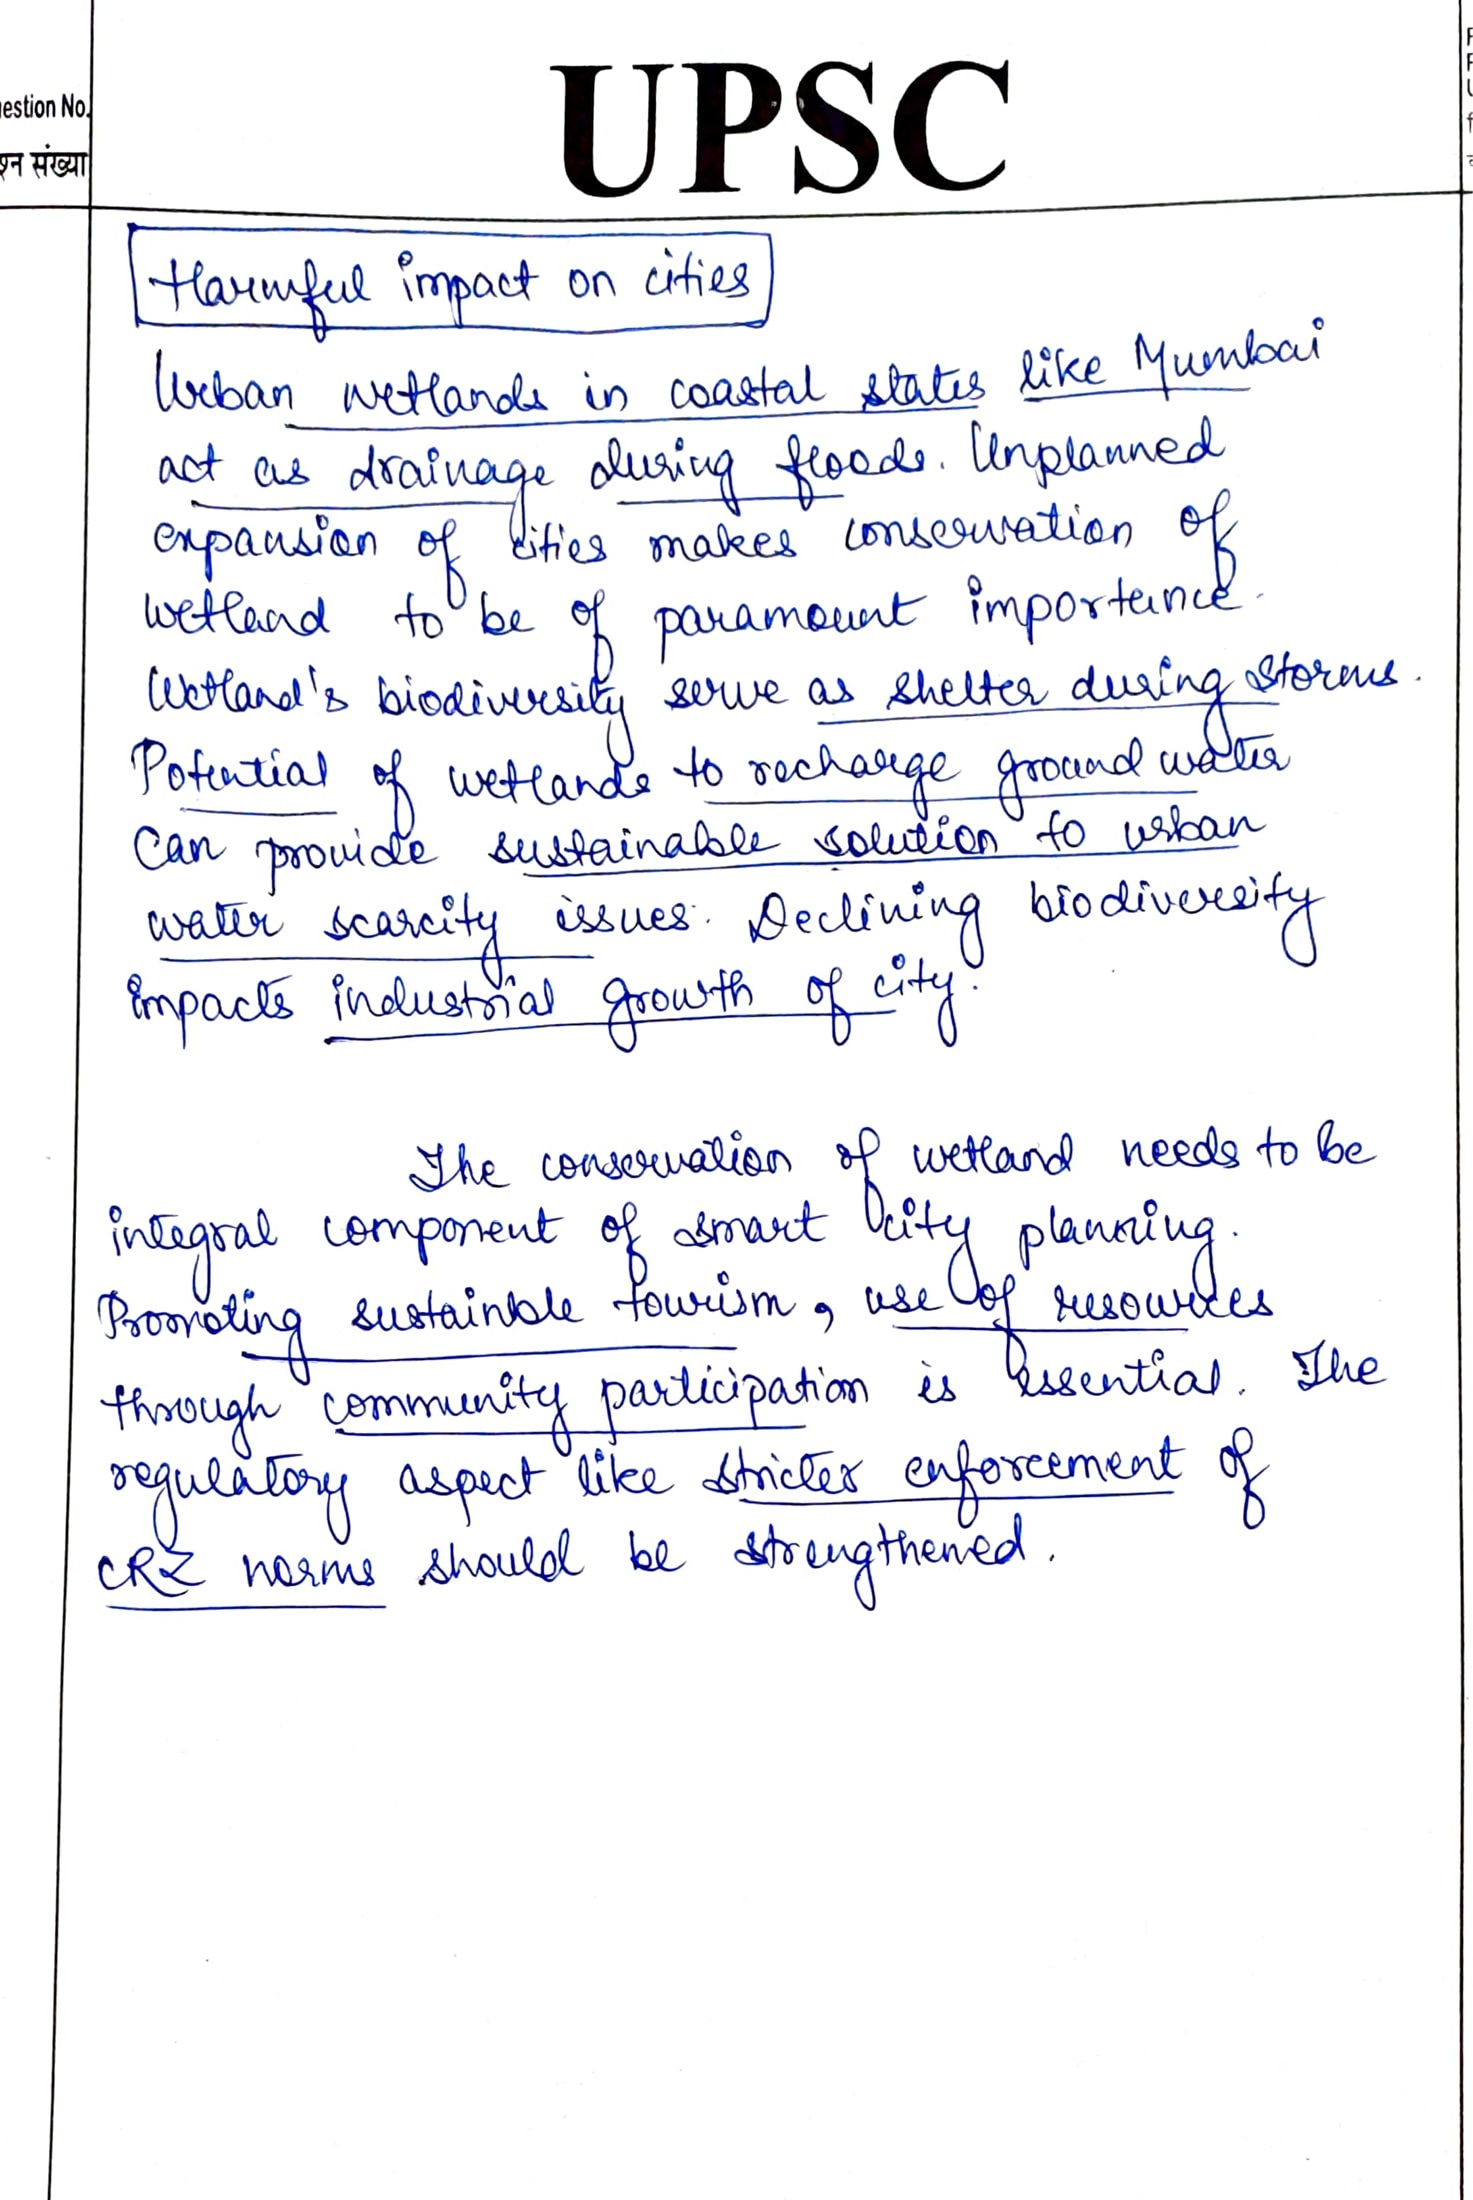 UPSC
estion No.
श्न संख्या
Harmful impact on cities
Urban wetlands in coastal states like Mumbai
act as drainage during floods. Unplanned
expansion of cities makes conservation of
wetland to be of paramount importance.
Wetland's biodiversity serve as shelter during storms.
Potential of wetlands to recharge ground water
can provide sustainable solution to urban
water scarcity issues. Declining biodiversity
impacts industrial growth of city.
The conservation of wetland needs to be
integral component of smart city planning.
Promoting sustainble tourism, use of resources
through community participation is essential. The
regulatory aspect like stricter enforcement of
CRZ norms should be strengthened.